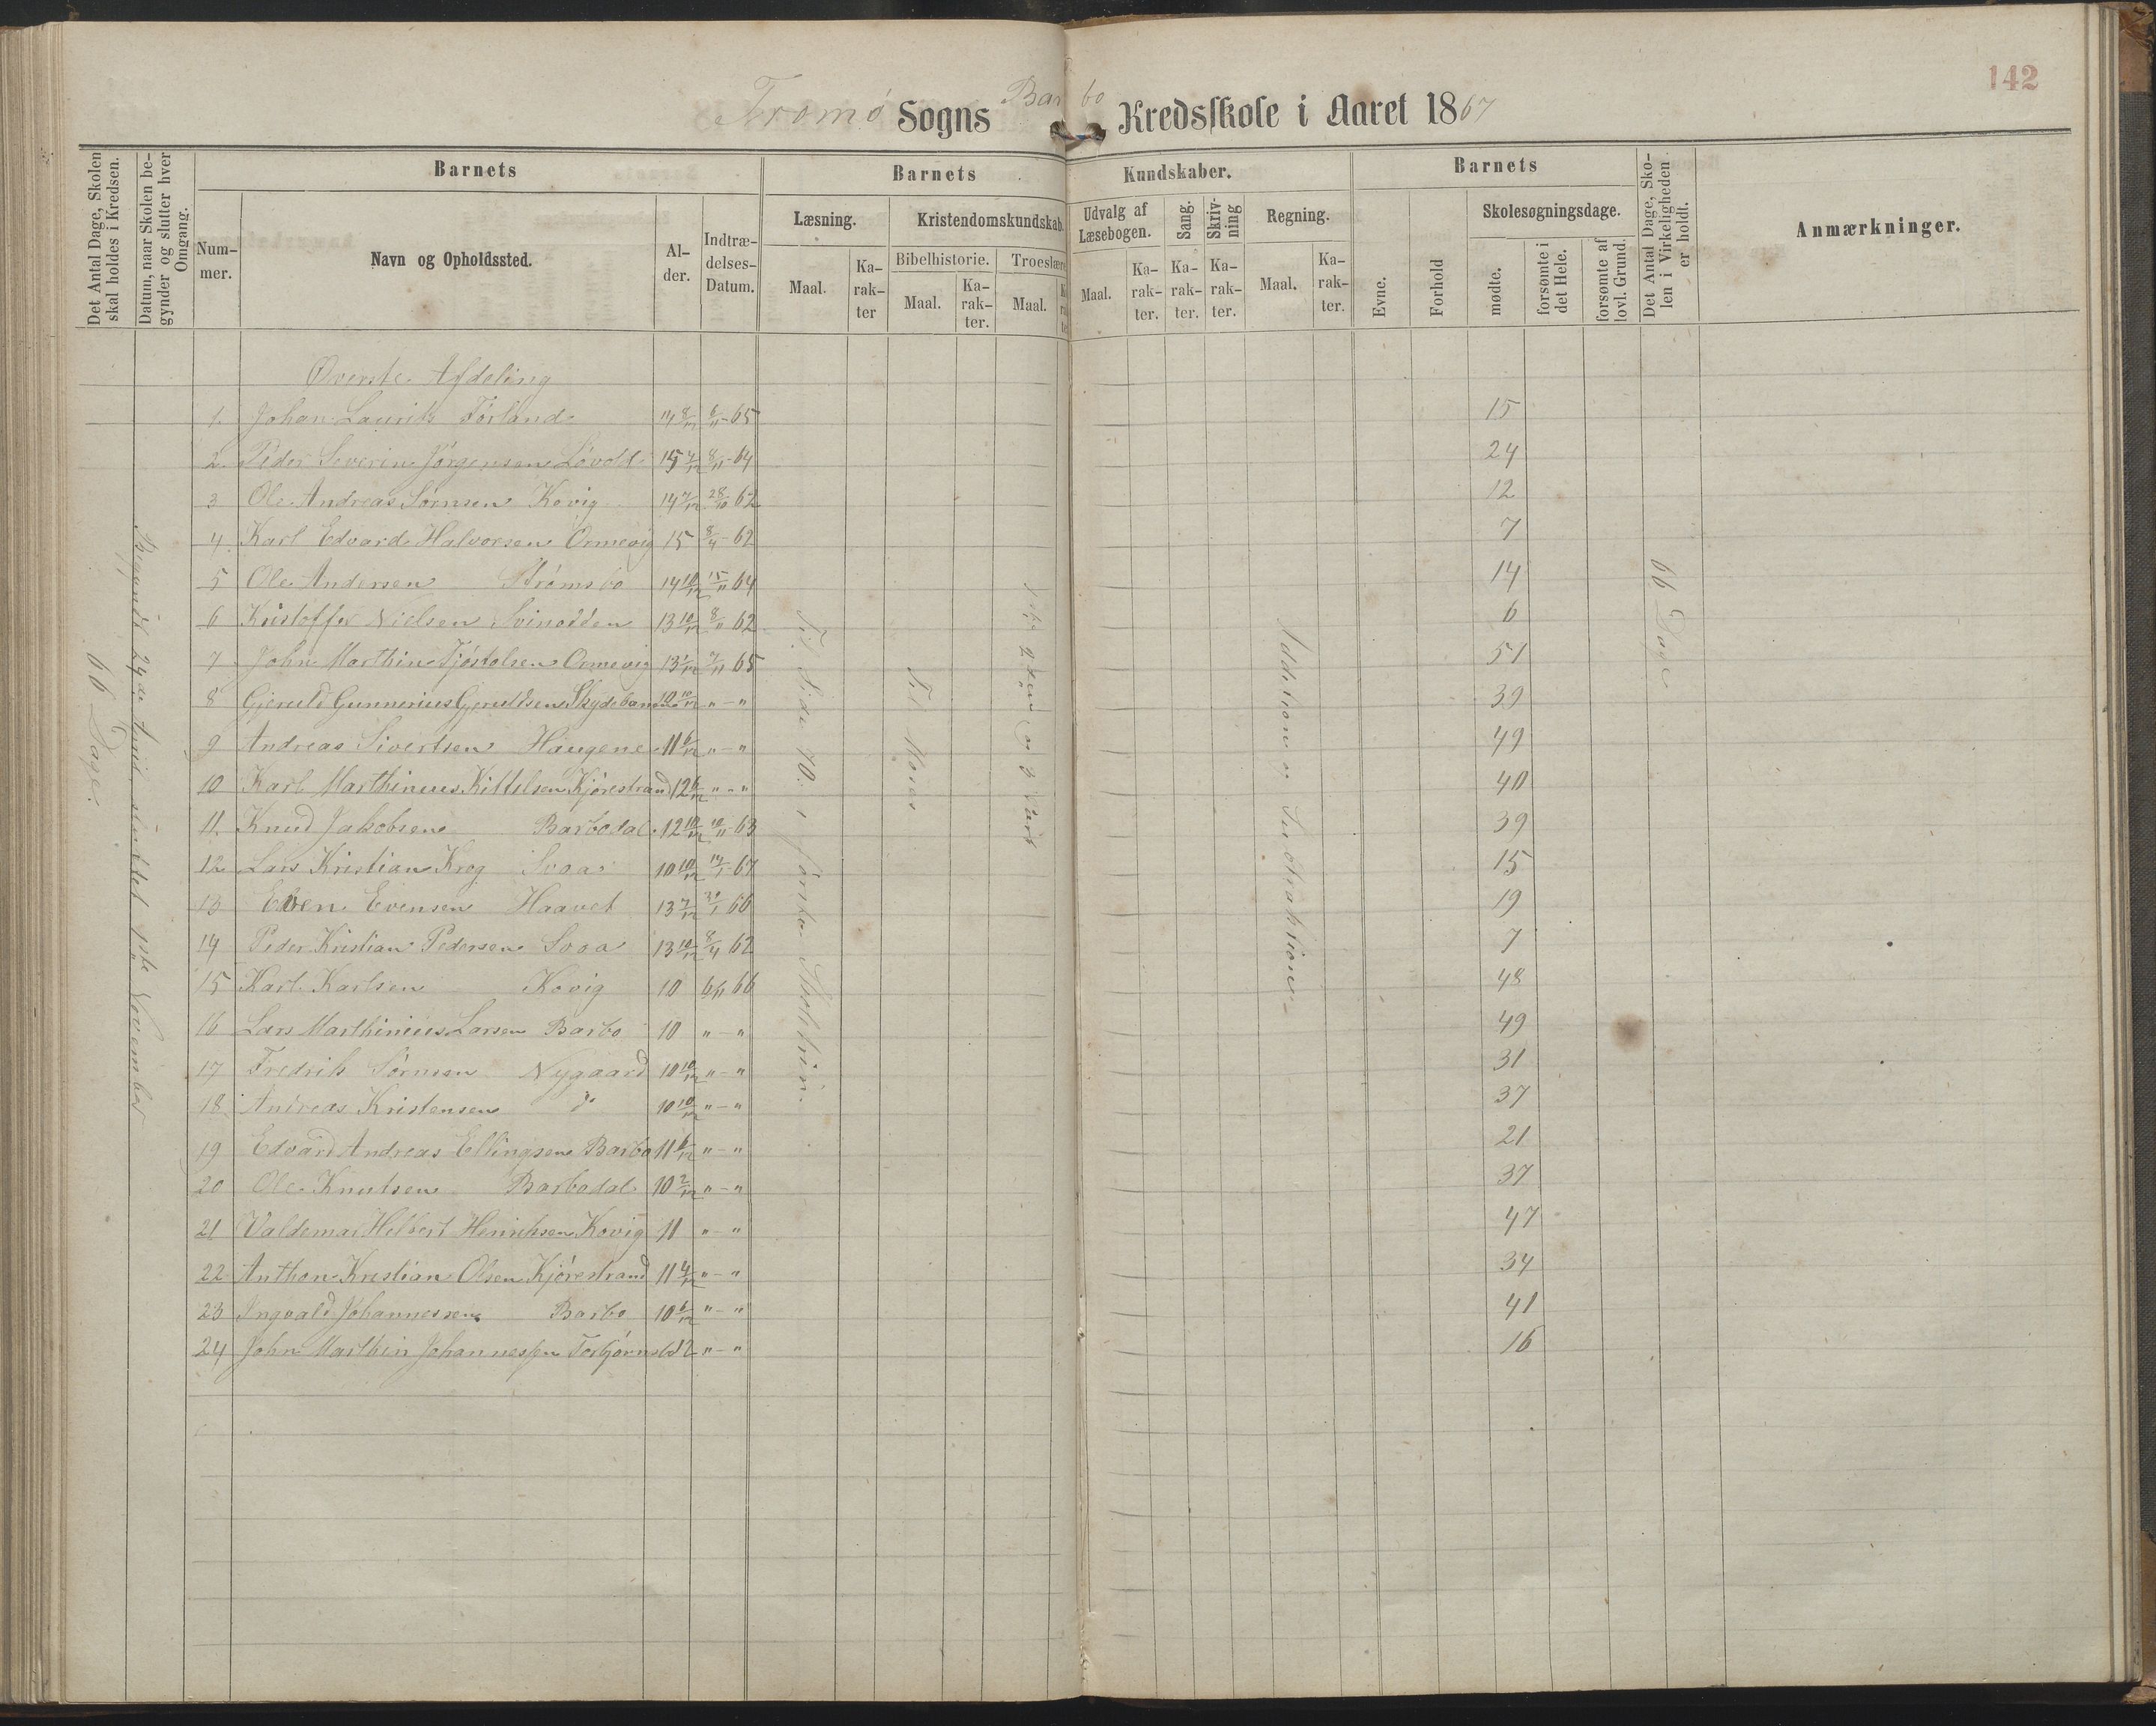 142
Tromø Sogns Barbo Kredsskole i Aaret 1867
Det Antal Dage, Skolen skal holdes i Kredsen.
Datum, naar Skolen begynder og slutter hver Omgang.
Barnets
Nummer.
Navn og Opholdssted.
Alder.
Indtrædelses-Datum.
Barnets Kundskaber.
Læsning.
Maal.
Karakter
Kristendomskundskab.
Bibelhistorie.
Maal.
Karakter.
Troeslære
Maal.
Udvalg af Læsebogen.
Maal.
Karakter.
Sang.
Karakter.
Skrivning
Karakter.
Regning.
Maal.
Karakter.
Barnets
Evne.
Forhold
Skolesøgningsdage.
mødte.
forsømte i det Hele.
forsømte af lovl. Grund.
Det Antal Dage, Skolen i Virkeligheden er holdt.
Anmærkninger.
Øverste Afdeling
1. Johan Laurits Forland 14 8/12 6/11-65 15
2. Peder Severin Jørgensen Løvold 15 4/12 8/11-64 24
3 Ole Andreas Sørnsen Kovig 14 7/12 28/10 62 12
4. Karl Edvard Halvorsen Ormevig 15 8/4-62 7
5 Ole Andersen Strømsbo 14 10/12 15/11 64 14
6 Kristoffer Nielsen Svinodden 13 10/12 8/11 62 6
7 John Marthin Fjøstolsen Ormevig 13 1/12 7/11 65 51
8 Gjeruld Gunnerius Gjeruldsen Skydebanen 10 10/12 "-" 39
9 Andreas Sivertsen Haugene 11 6/12 "-" 49
10 Karl Marthinius Kittelsen Kjørestrand 12 6/12 "-" 40
11. Knud Jakobsen Barbodal 12 10/12 10/11-63 39
12 Lars Kristian Krog Svoa 10 10/12 14/1-67 15
13 Even Evensen Haavet 13 7/12 66 19
14 Peder Kristian Pedersen Svoa 13 10/12 8/4 62 7
15 Karl Karlsen Kovig 10 6/11 66 48
16 Lars Marthinius Larsen Barbo 10 "-" 49
17 Fredrik Sørnsen Nygaard 10 10/12 "-" 31
18 Andreas Kristensen do 10 10/12 "-" 37
19 Edvard Andreas Ellingsen Barbo 11 6/12 "-" 21
20 Ole Knutsen Barbodal 10 2/12 "-" 37
21 Valdemar Helbert Henriksen Kovig 11 "-" 47
22 Anthon Kristian Olsen Kjørestrand 11 4/12 "-" 34
23 Ingvald Johannessen Barbo 10 6/12 "-" 41
24 John Marthin Johannessen 12 "-" 16
66 Dage.
Begyndt 24de April sluttet November
Til Side 70 i første Skoletrin.
Til Moses
2den og 3 Part
Addition og Subtraktion
66 Dage